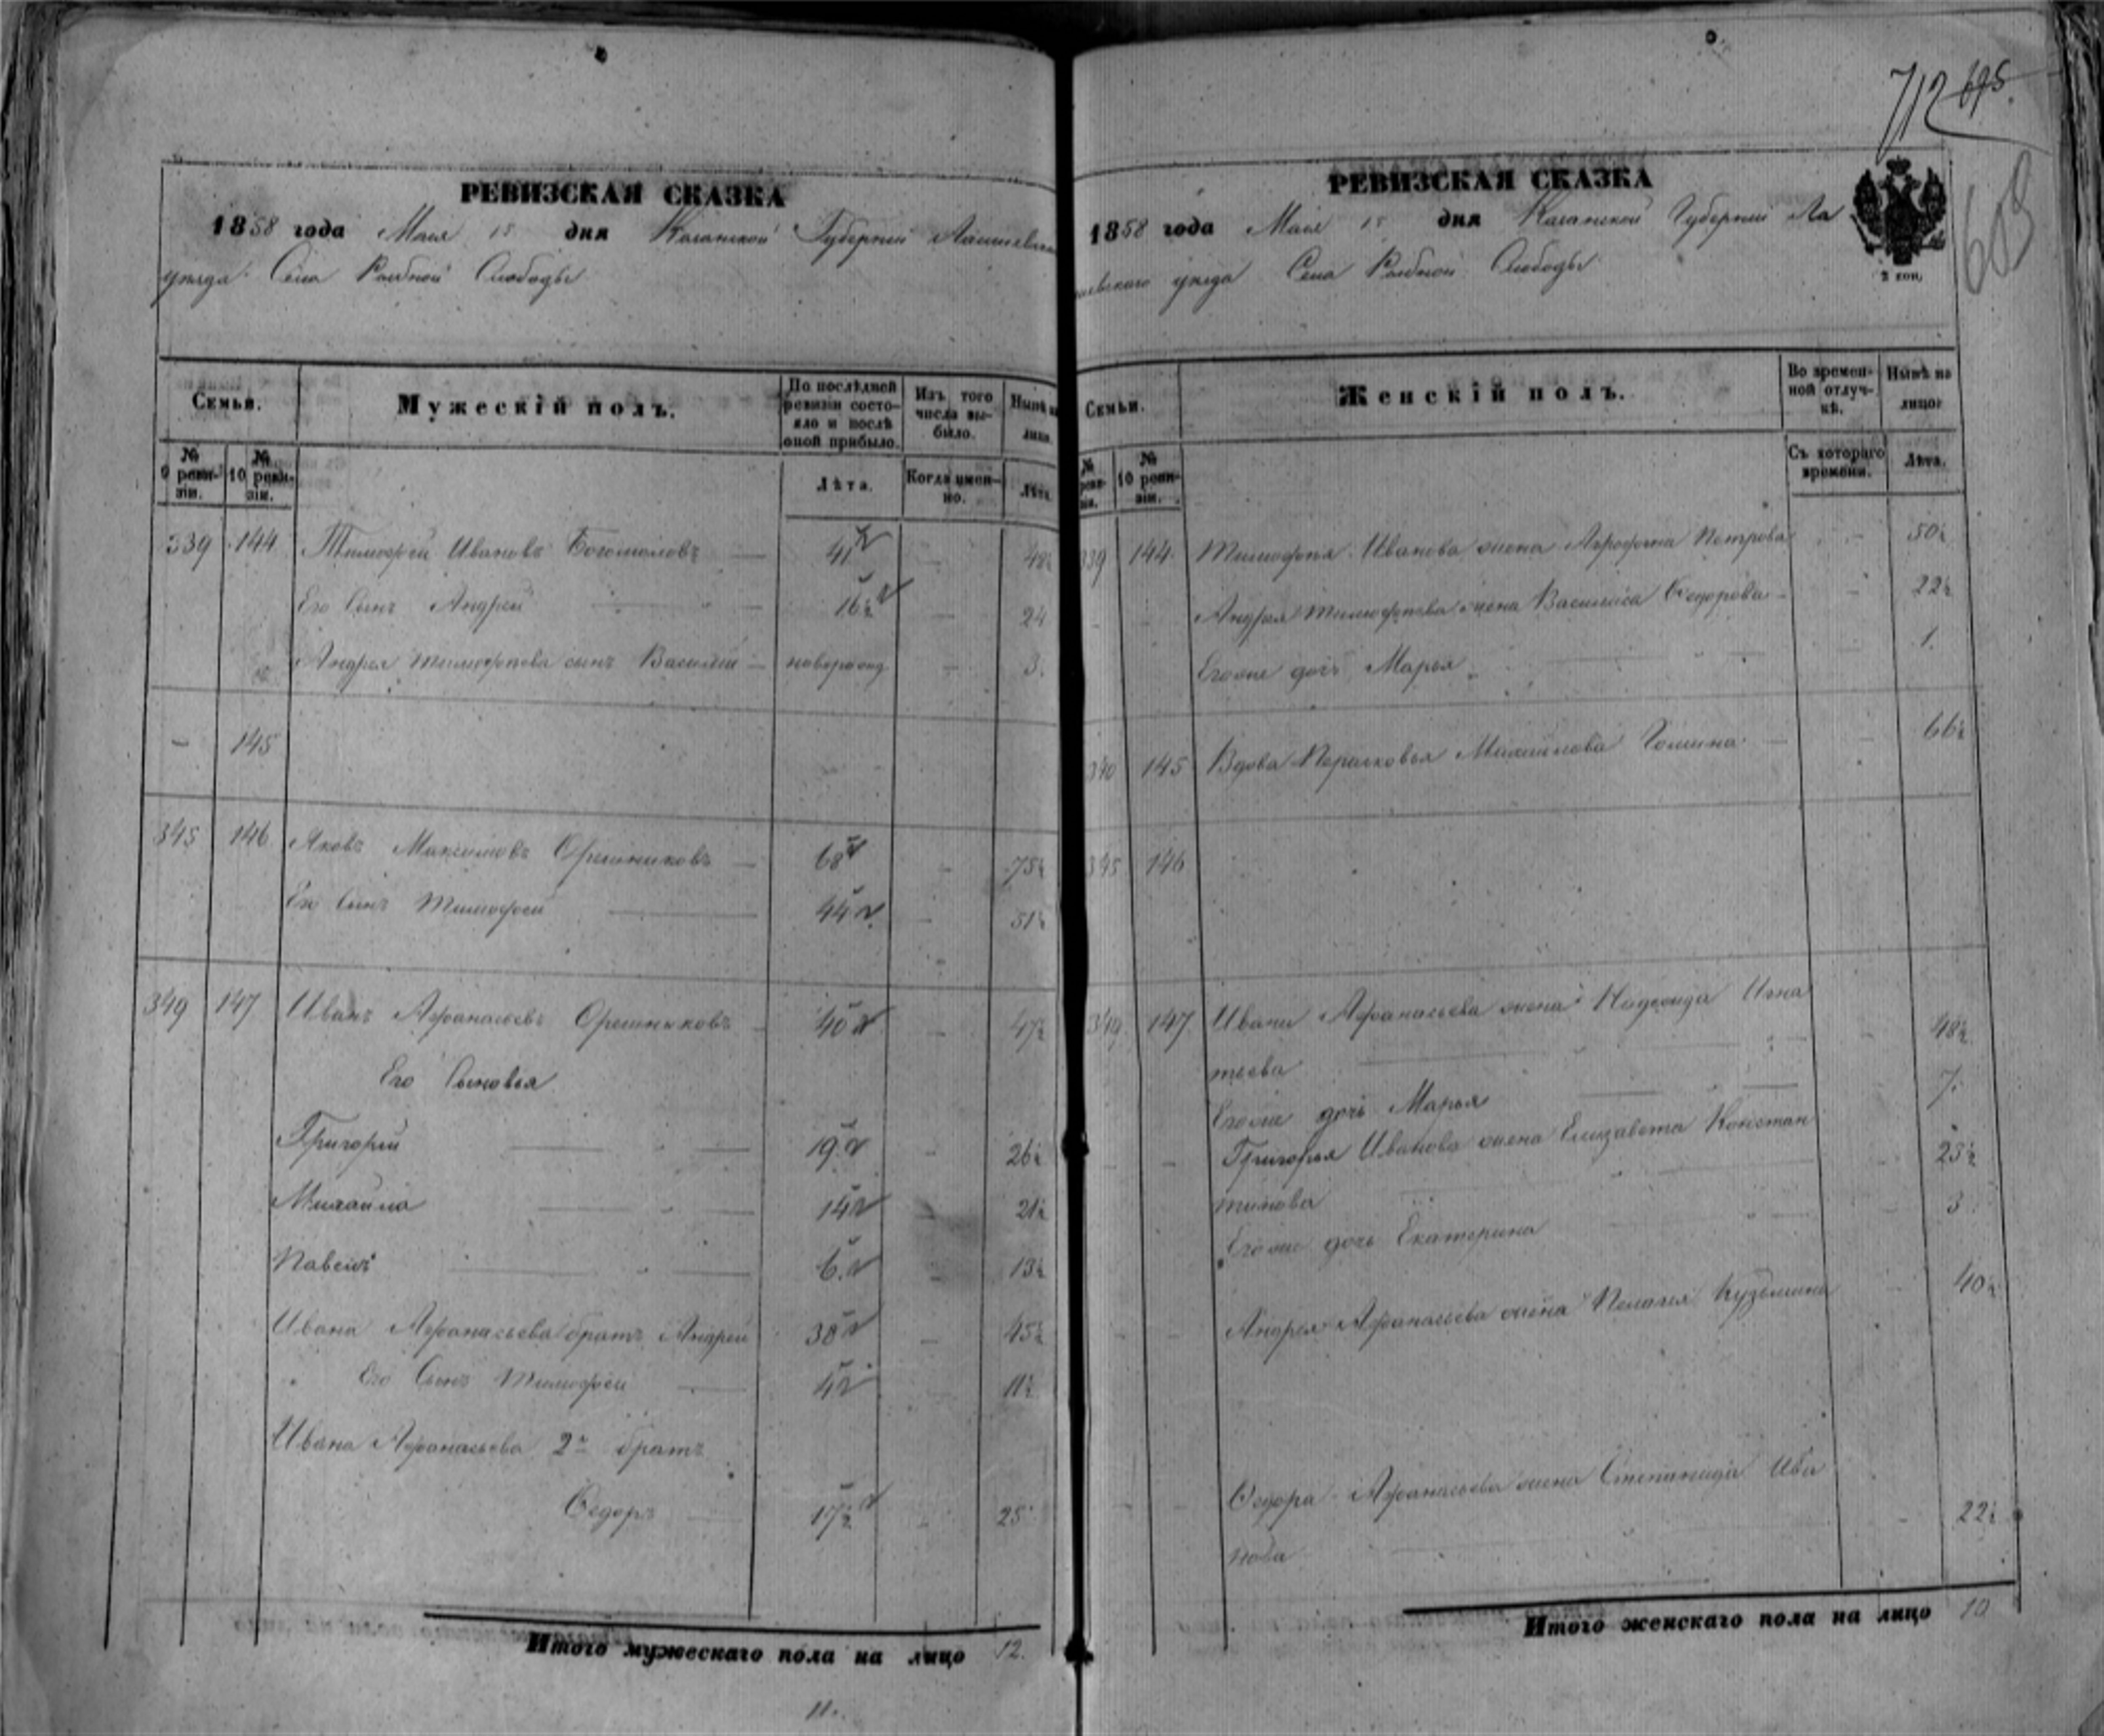 712 695
603
РЕВИЗСКАЯ СКАЗКА
1858 года Мая 15 дня Казанской Губерніи Лаишевскаго
уѣзда Села Рыбной Слободы
Семьи.
Мужескій полъ.
По послѣдней ревизіи состояло и послѣ оной прибыло.
Изъ того числа выбыло.
Нынѣ на лицо.
№ 9 ревизіи.
№ 10 ревизіи.
Лѣта.
Когда именно.
Лѣта.
339 144 Тимофей Ивановъ Богомоловъ 41 48½
Его Сынъ Андрей 16½ 24
Андрея Тимофеева сынъ Василій новорожд 3.
— 145
345 146 Яковъ Максимовъ Орешниковъ 68 75½
Его Сынъ Тимофей 44 51½
349 147 Иванъ Афанасьевъ Орешниковъ 40 47½
Его Сыновья
Григорій 19 26½
Михайла 14 21½
Павелъ 6 13½
Ивана Афанасьева братъ Андрей 38 45½
Его Сынъ Тимофей 4 11½
Ивана Афанасьева 2й братъ
Ѳедоръ 17½ 25
Итого мужескаго пола на лицо 12.
11.
РЕВИЗСКАЯ СКАЗКА
1858 года Мая 15 дня Казанской Губерніи Лаи
шевскаго уѣзда Села Рыбной Слободы
2 коп.
Семьи.
Женскій полъ.
Во временной отлучкѣ.
Нынѣ на лицо
№ ревизіи.
№ 10 ревизіи.
Съ котораго времени.
Лѣта.
339 144 Тимофея Иванова жена Афросинья Петрова 50½
Андрея Тимофеева жена Василиса Ѳедорова 22½
Егоже дочь Марья 1.
340 145 Вдова Парасковья Михайлова 66½
345 146
349 147 Ивана Афанасьева жена Надежда Игна
тьева 48½
Егоже дочь Марья 7.
Григорья Иванова жена Елизавета Констан
тинова 25½
Егоже дочь Екатерина 3
Андрея Афанасьева жена Пелагея Кузьмина 40½
Ѳедора Афанасьева жена Степанида Ива
нова 22½
Итого женскаго пола на лицо 10